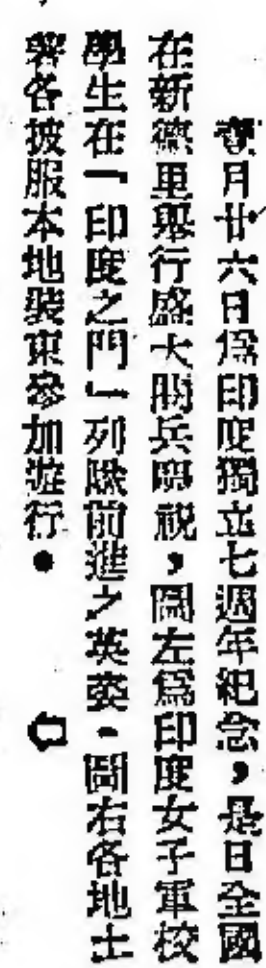 壹月廿六日爲印度獨立七週年紀念，是日全國
在新德里舉行盛大閱兵慶祝，圖左爲印度女子軍校
學生在「印度之門」列隊前進之英姿。圖右各地土
著各披服本地裝束參加遊行。